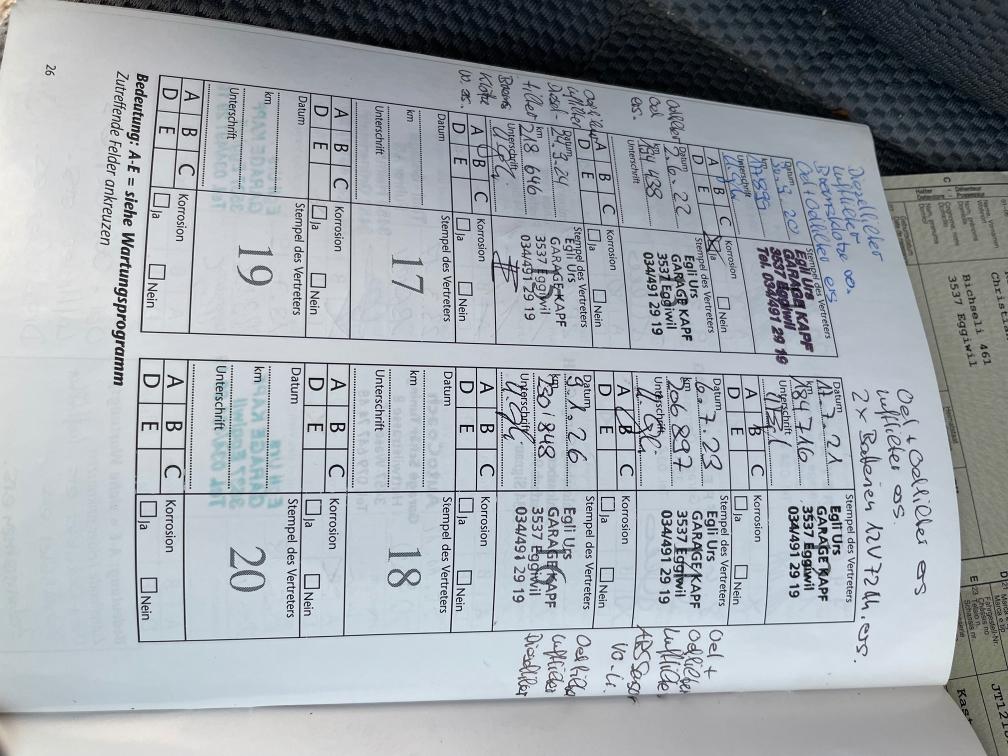 Dieselfilter
Luftfilter
Bremsklötze va.
Oel / Oelfilter ers
Datum 30. 9. 20
Stempel des Vertreters
km
Egli Urs
GARAGE KAPF
3537 Eggiwil
Tel. 034/491 29 19
Unterschrift
A B C
D E
Korrosion
Ja
Nein
Oelfilter
Oel
ers.
Datum 2. 6. 22
km 194 438
Unterschrift
Stempel des Vertreters
Egli Urs
GARAGE KAPF
3537 Eggiwil
034/491 29 19
A B C
D E
Korrosion
Ja
Nein
Luftfilter
Diesel-
filter
Brems
Klötze
Datum 24. 3. 24
km 218 646
Unterschrift
Stempel des Vertreters
Egli Urs
GARAGE KAPF
3537 Eggiwil
034/491 29 19
A B C
D E
Korrosion
Ja
Nein
Datum
km
Unterschrift
Stempel des Vertreters
17
A B C
D E
Korrosion
Ja
Nein
Datum
km
Unterschrift
Stempel des Vertreters
19
A B C
D E
Korrosion
Ja
Nein
Bedeutung: A-E = siehe Wartungsprogramm
Zutreffende Felder ankreuzen
26
Oel + Oelfilter ers
Luftfilter ers.
2x Batterien 12V 72Ah ers.
Datum 17. 7. 21
km 184 716
Unterschrift
Stempel des Vertreters
Egli Urs
GARAGE KAPF
3537 Eggiwil
034/491 29 19
A B C
D E
Korrosion
Ja
Nein
Datum 6. 7. 23
km 206 897
Unterschrift
Stempel des Vertreters
Egli Urs
GARAGE KAPF
3537 Eggiwil
034/491 29 19
Oel +
Oelfilter
Luftfilter
ABS Sensor
A B C
D E
Korrosion
Ja
Nein
Datum 9. 1. 26
km 230 848
Unterschrift
Stempel des Vertreters
Egli Urs
GARAGE KAPF
3537 Eggiwil
034/491 29 19
Luftfilter
Dieselfilter
A B C
D E
Korrosion
Ja
Nein
Datum
km
Unterschrift
Stempel des Vertreters
18
A B C
D E
Korrosion
Ja
Nein
Datum
km
Unterschrift
Stempel des Vertreters
20
A B C
D E
Korrosion
Ja
Nein
Bichseli 461
3537 Eggiwil